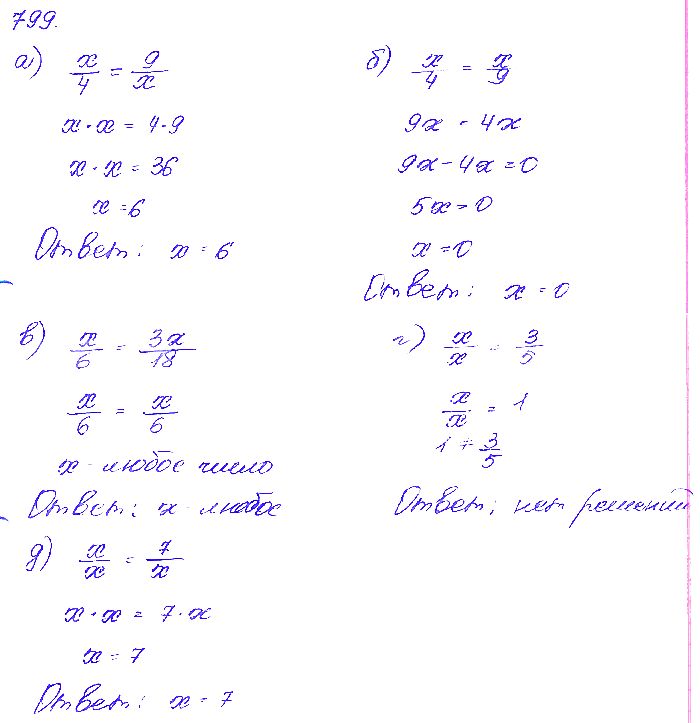 799.
а) x/4 = 9/x
x · x = 4 · 9
x · x = 36
x = 6
Ответ: x = 6
б) x/4 = x/9
9x = 4x
9x - 4x = 0
5x = 0
x = 0
Ответ: x = 0
в) x/6 = 3x/18
x/6 = x/6
x - любое число
Ответ: x - любое
г) x/x = 3/5
x/x = 1
1 ≠ 3/5
Ответ: нет решений
д) x/x = 7/x
x · x = 7 · x
x = 7
Ответ: x = 7